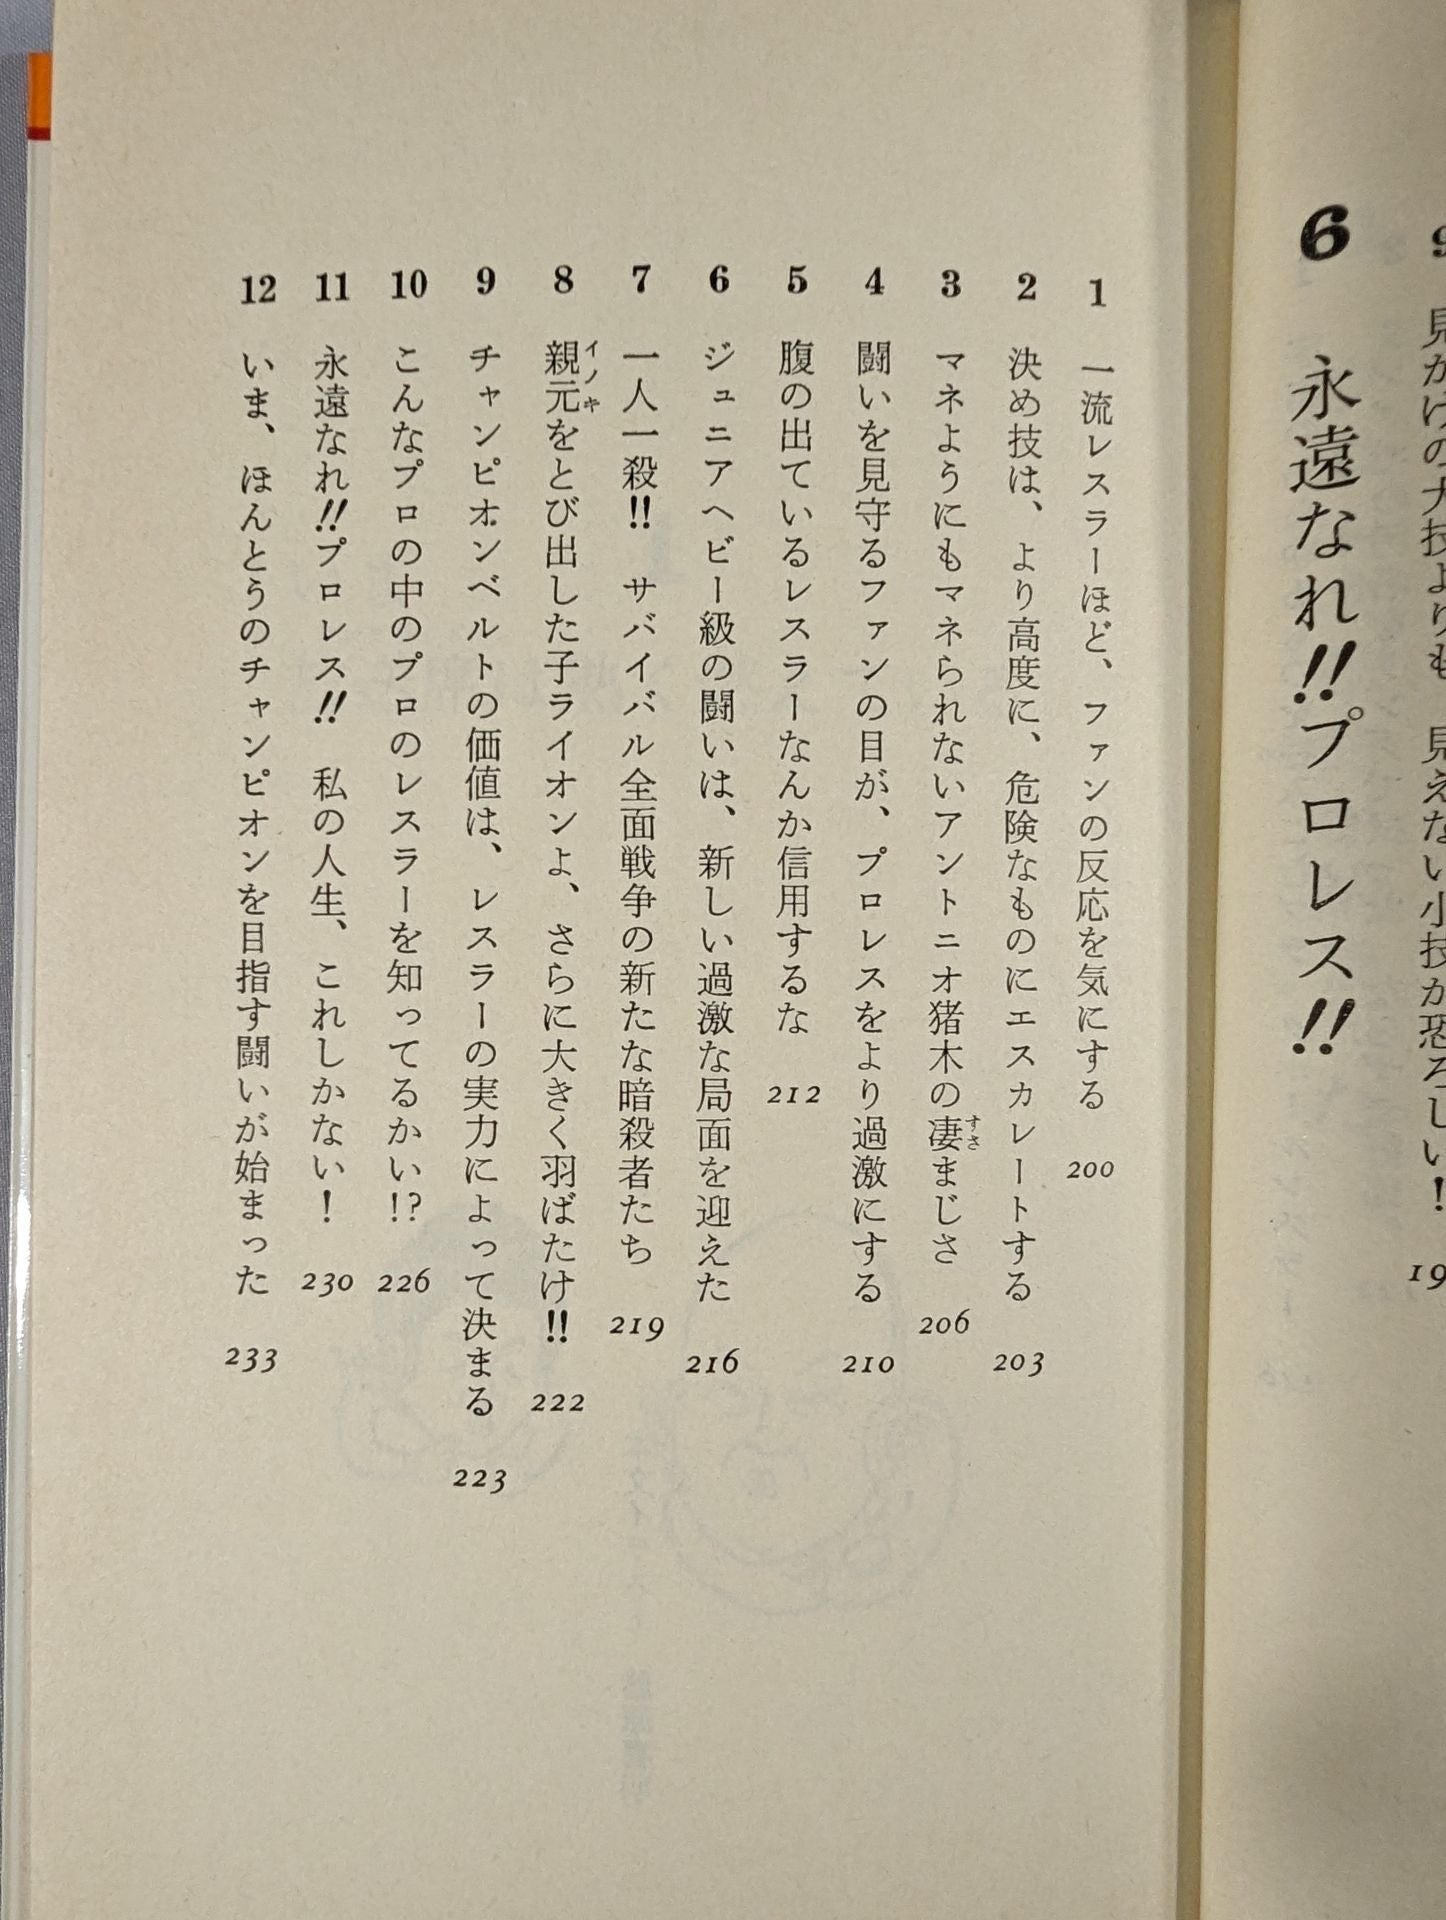 9 見かけの大技よりも、見えない小技が恐ろしい! 19
6 永遠なれ!!プロレス!!
1 一流レスラーほど、ファンの反応を気にする 200
2 決め技は、より高度に、危険なものにエスカレートする 203
3 マネようにもマネられないアントニオ猪木の凄まじさ 206
すさ
4 闘いを見守るファンの目が、プロレスをより過激にする 210
5 腹の出ているレスラーなんか信用するな 212
6 ジュニアヘビー級の闘いは、新しい過激な局面を迎えた 216
7 一人一殺!! サバイバル全面戦争の新たな暗殺者たち 219
8 親元をとび出した子ライオンよ、さらに大きく羽ばたけ!! 222
イノキ
9 チャンピオンベルトの価値は、レスラーの実力によって決まる 223
10 こんなプロの中のプロのレスラーを知ってるかい!? 226
11 永遠なれ!!プロレス!! 私の人生、これしかない! 230
12 いま、ほんとうのチャンピオンを目指す闘いが始まった 233